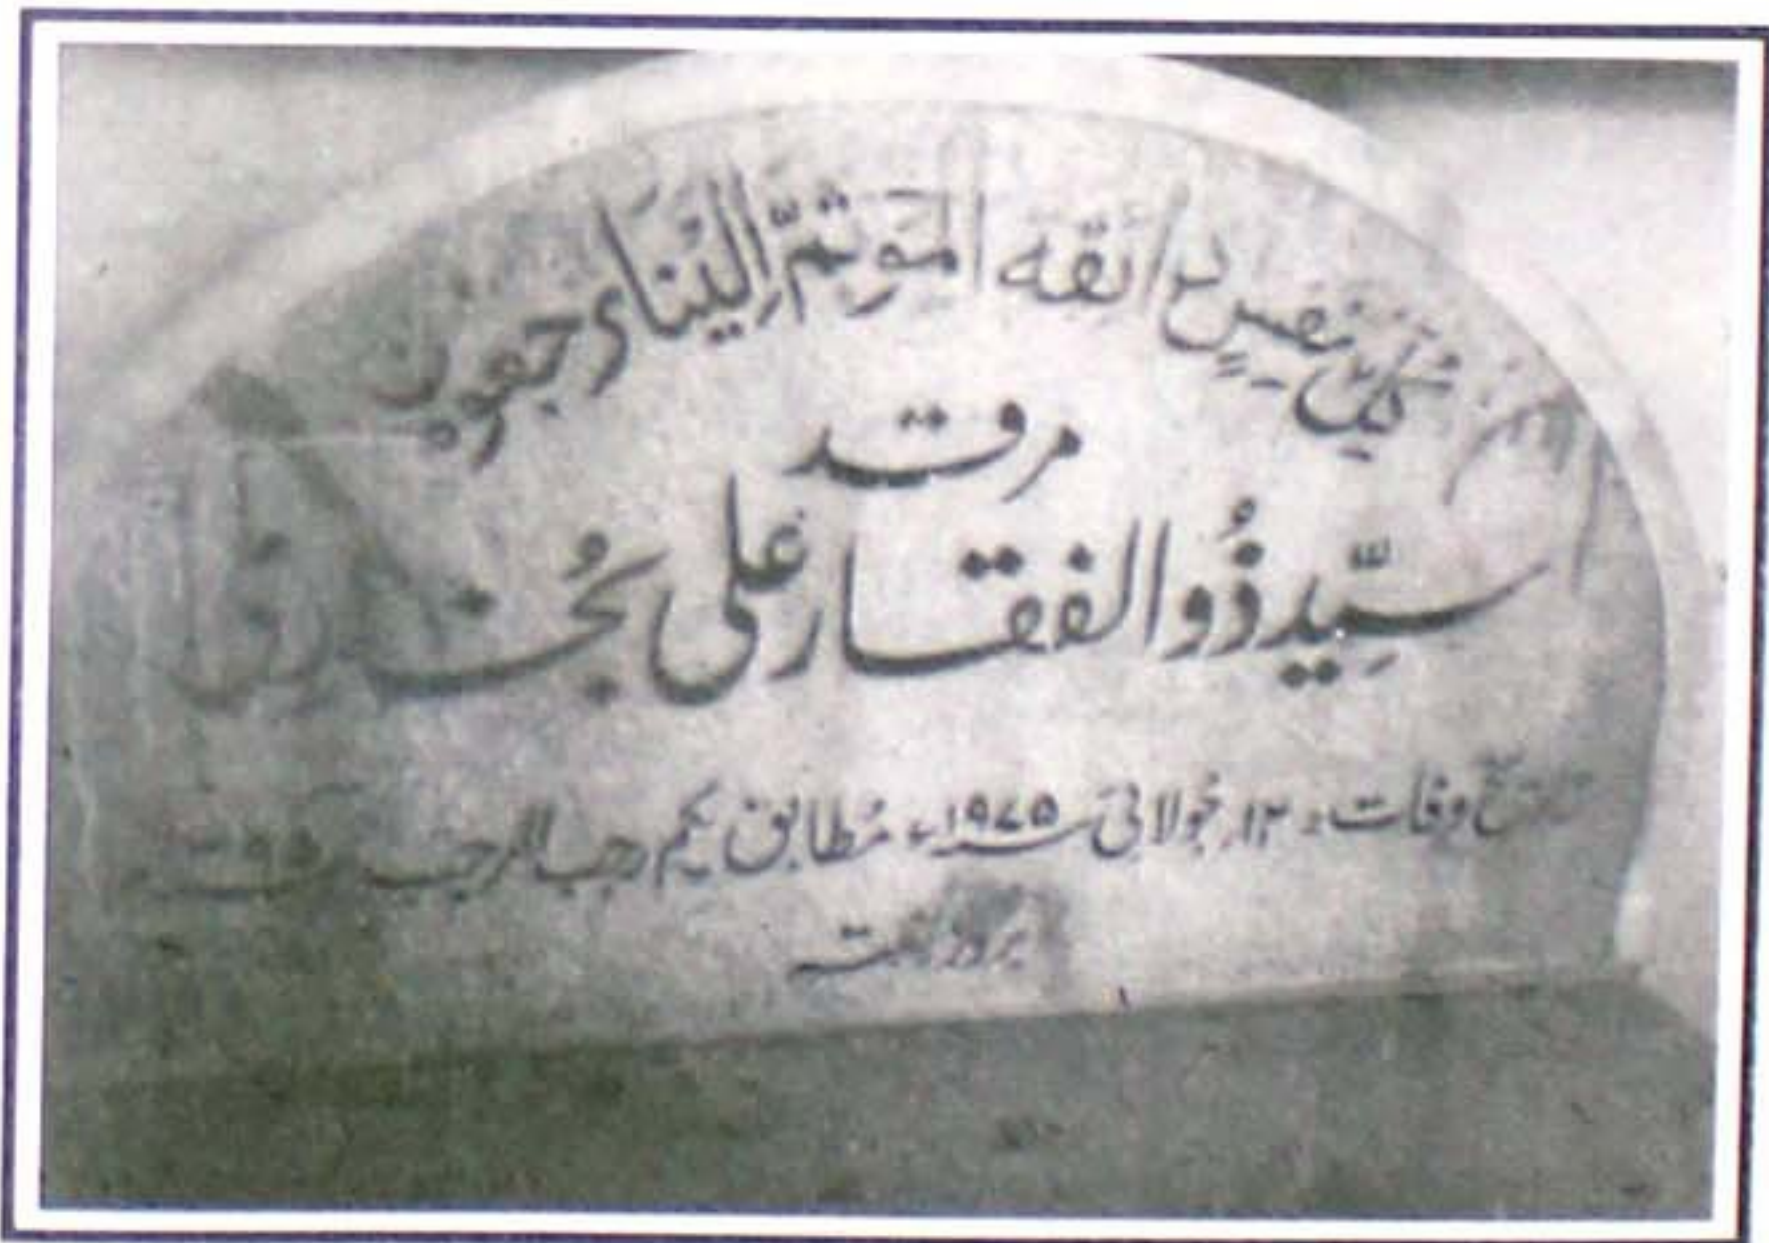 كُلُّ نَفْسٍ ذائقة الموت ثمّ إلينا ترجعون
مرقد
سیّد ذُوالفقار علی بُخاری
تاریخ وفات: ۱۲؍ جُولائی سنہ ۱۹۷۵ء مُطابق یکم رجب المرجب
بروز ہفتہ